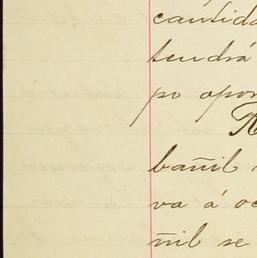 cantida
tendrá
po opor
R
bañil
va á oc
ñil se